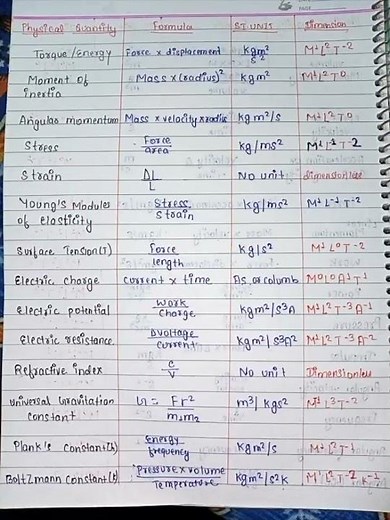 Physical Quantity Formula SI UNIT Dimension
Torque/Energy Force x displacement kgm²/s² M¹L²T-2
Moment of inertia Mass x (radius)² kgm² M¹L²T0
Angular momentum Mass x velocity x radius kgm²/s M¹L²T-1
Stress Force/area kg/ms² M¹L-1T-2
Strain ΔL/L No unit dimensionless
Young's Modules of elasticity Stress/Strain kg/ms² M¹L-1T-2
Surface Tension(T) Force/length kg/s² M¹L0T-2
Electric charge current x time As, or columb M0L0A1T1
Electric potential Work/Charge kgm²/s³A M¹L²T-3A-1
Electric resistance Δvoltage/Current kgm²/s³A² M¹L²T-3A-2
Refractive index c/v No unit Dimensionless
Universal Gravitation constant G = Fr²/m₁m₂ m³/kgs² M-1L3T-2
Plank's constant(h) Energy/frequency kgm²/s M¹L²T-1
Boltzmann constant(k) Pressure x volume/Temperature kgm²/s²k M¹L²T-2k-1